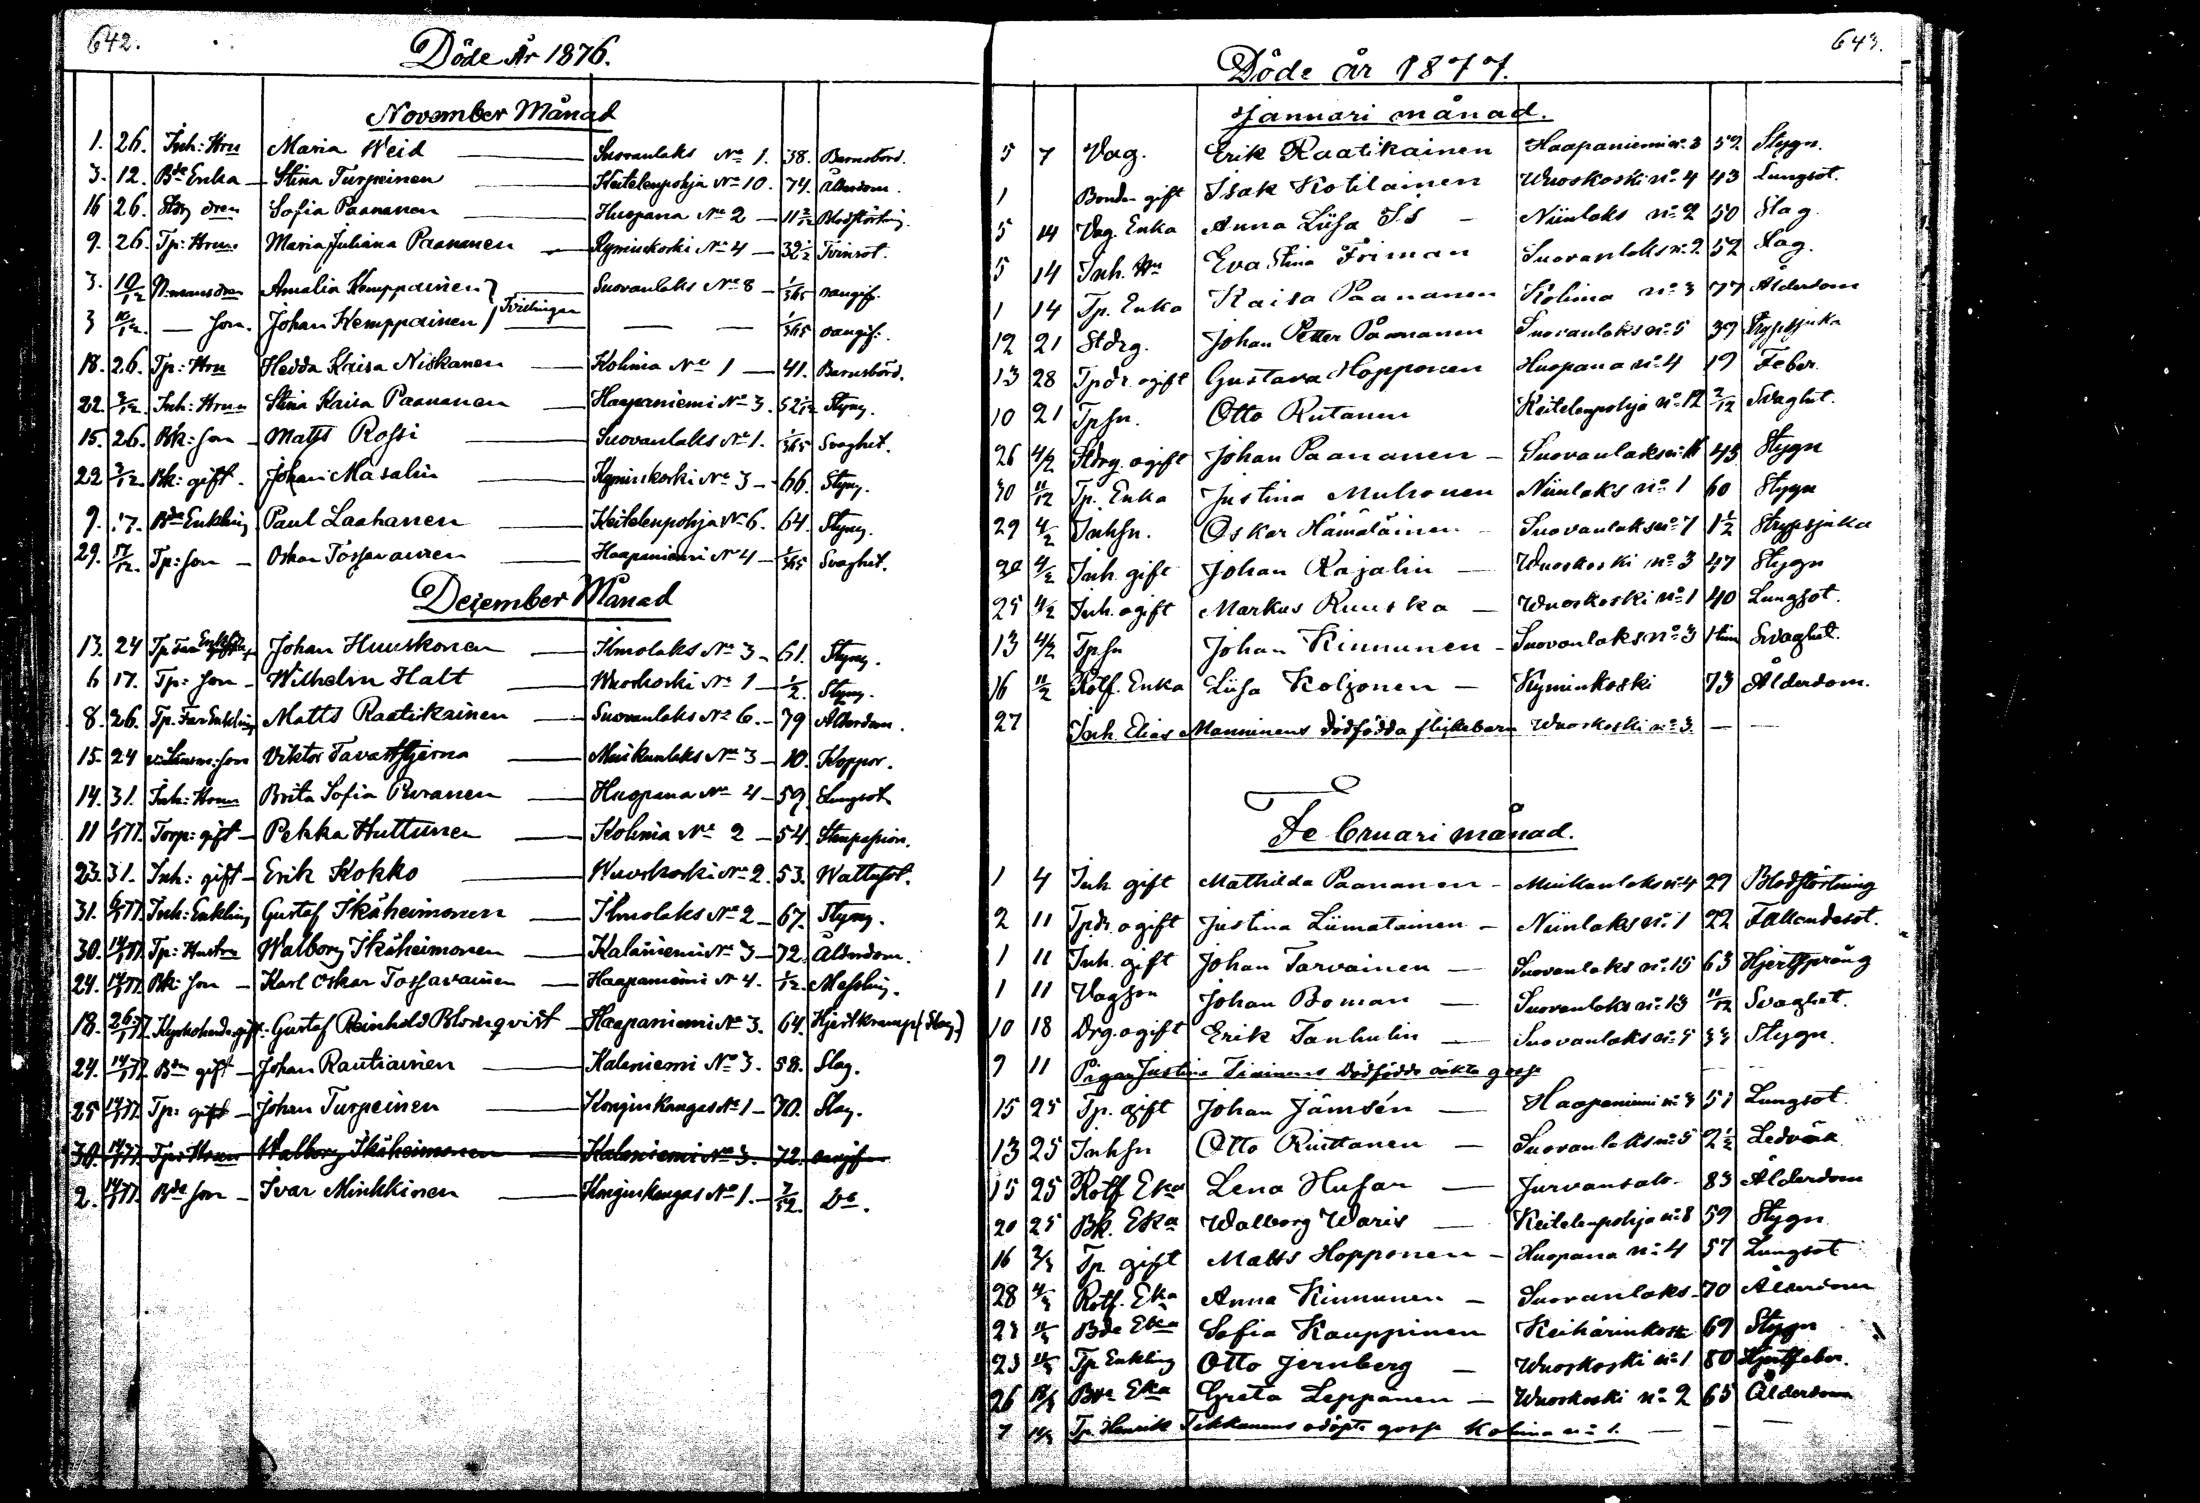 642.
Döde År 1876.
November Månad
1. 26. Inh: Hru Maria Weid Suovanlaks No 1. 38. Barnsbörd.
3. 12. Bde Enka Stina Turpeinen Keitelenpohja No 10. 74. Ålderdom.
16 26. Sofia Paananen Huopana No 2 11 2/12 Blodstörtning.
9. 26. Tp: Hru Maria Juliana Paananen Kyminkoski No 4 32 1/2 Tvinsot.
3. 10/12 Amalia Kemppainen Tvillingar Suovanlaks No 8 1/365 oangif.
3 10/12 son. Johan Kemppainen 1/365 oangif.
18. 26. Tp: Hru Hedda Kaisa Niskanen Kolima No 1 41. Barnsbörd.
22. 3/12 Inh: Hru Stina Kaisa Paananen Haapaniemi No 3. 52 1/12 Styng.
15. 26. Bk: son Matts Rossi Suovanlaks No 1. 1/365 Svaghet.
22 3/12 Bk: gift. Johan Masalin Kyminkoski No 3 66. Styng.
9. 17. Bde Enkling Paul Laahanen Keitelenpohja No 6. 64. Styng.
29. 17/12. Tp: son Oskar Tossavainen Haapaniemi No 4 1/365 Svaghet.
December Månad
13. 24 Tp. Johan Huuskonen Ilmolaks No 3 61. Styng.
6 17. Tp: son Wilhelm Halt Wuoskoski No 1 1/2. Styng.
8. 26. Tp. Far Enkling Matts Raatikainen Suovanlaks No 6. 79 Ålderdom.
15. 24 son Viktor Tavaststjerna Muikunlaks No 3 10. Koppor.
14. 31. Inh: Hru Brita Sofia Puranen Huopana No 4 59 Lungsot
11 1/1 77. Torp: gift Pekka Huttunen Kolima No 2 54. Stenpassion.
23. 31. Inh: gift Erik Kokko Wuoskoski No 2. 53. Wattusot.
31. 6/1 77. Inh: Enkling Gustaf Ikäheimonen Ilmolaks No 2 67. Styng.
30. 14/1 77. Tp: Hustru Walborg Ikäheimonen Kalaniemi No 3 72. Ålderdom.
24. 14/1 77. Bk: son Karl Oskar Tossavainen Haapaniemi No 4. 1/12. Messling.
18. 26/1 77. gift. Gustaf Reinhold Blomqvist Haapaniemi No 3. 64. Hjertkramp (Slag.)
24. 14/1 77. Bde gift Johan Rautiainen Kalaniemi No 3. 58. Slag.
25 14/1 77. Tp: gift Johan Turpeinen Konginkangas No 1 70. Slag.
30. 14/1 77. Tp: Hru Walborg Ikäheimonen Kalaniemi No 3. 72. oangif
2. 14/1 77. Bde son Ivar Minkkinen Konginkangas No 1. 7/52. Do.
643.
Döde år 1877.
Januari månad.
5 7 Vag. Erik Raatikainen Haapaniemi no. 3 52 Stygn.
1 Bonden gift Isak Kotilainen Wuoskoski no 4 43 Lungsot.
5 14 Vag. Enka Anna Liisa Niinlaks no 2 50 Slag.
5 14 Inh. Hu Eva Stina Friman Suovanlaks no 2 52 Slag.
1 14 Tp. Enka Kaisa Paananen Kolima no 3 77 Ålderdom
12 21 Stdrg. Johan Petter Paananen Suovanlaks no 5 37 Strypsjuka
13 28 Tpdr. ogift Gustava Hopponen Huopana no 4 19 Feber.
10 21 Tpsn. Otto Rutanen Keitelenpohja no 12 2/12 Svaghet.
26 4/2 Stdrg. ogift Johan Paananen Suovanlaks 45 Stygn
30 11/12 Tp. Enka Justina Muhonen Niinlaks no 1 60 Stygn
29 4/2 Inhsn. Oskar Hämäläinen Suovanlaks no 7 1 1/2 Strypsjuka
20 4/2 Inh. gift Johan Rajalin Wuoskoski no 3 47 Stygn
25 4/2 Inh. ogift Markus Ruuska Wuoskoski no 1 40 Lungsot.
13 4/2 Tpsn Johan Kinnunen Suovanlaks no 3 1 tim Svaghet.
16 11/2 Rotf. Enka Liisa Koljonen Kyminkoski 73 Ålderdom.
27 Inh. Elias Manninens dödfödda flickebarn Wuoskoski no 3
Februari månad.
1 4 Inh gift Mathilda Paananen Muikanlaks no 4 29 Blodstörtning
2 11 Tpdr. ogift Justina Liimatainen Niinlaks no 1 22 Fallandesot.
1 11 Inh. gift Johan Tarvainen Suovanlaks no 15 63 Hjertsprång
1 11 Vagson Johan Boman Suovanlaks no 13 11/12 Svaghet.
10 18 Drg. ogift Erik Tanhulin Suovanlaks no 5 33 Stygn.
9 11 Pigan Justina Tiainens dödfödde oäkta gosse
15 25 Tp. gift Johan Jämsén Haapaniemi no 3 51 Lungsot.
13 25 Inhsn Otto Riuttanen Suovanlaks no 5 2 1/2 Ledvärk
15 25 Rotf Eka Lena Husar Jurvansalo 83 Ålderdom
20 25 Bk. Eka Walborg Waris Keitelenpohja no 8 59 Stygn
16 3/3 Tp. gift Matts Hopponen Huopana no 4 57 Lungsot
28 4/3 Rotf. Eka Anna Kinnunen Suovanlaks 70 Ålderdom
23 11/3 Bde Eka Sofia Kauppinen Keihärinkoski 69 Stygn
23 11/3 Tp Enkling Otto Jernberg Wuoskoski no 1 80 Hjertfeber.
26 18/3 Bde Eka Greta Leppänen Wuoskoski no 2 65 Ålderdom
7 14/3 Tp. Henrik Tikkanens odöpte gosse Kolima no 1.